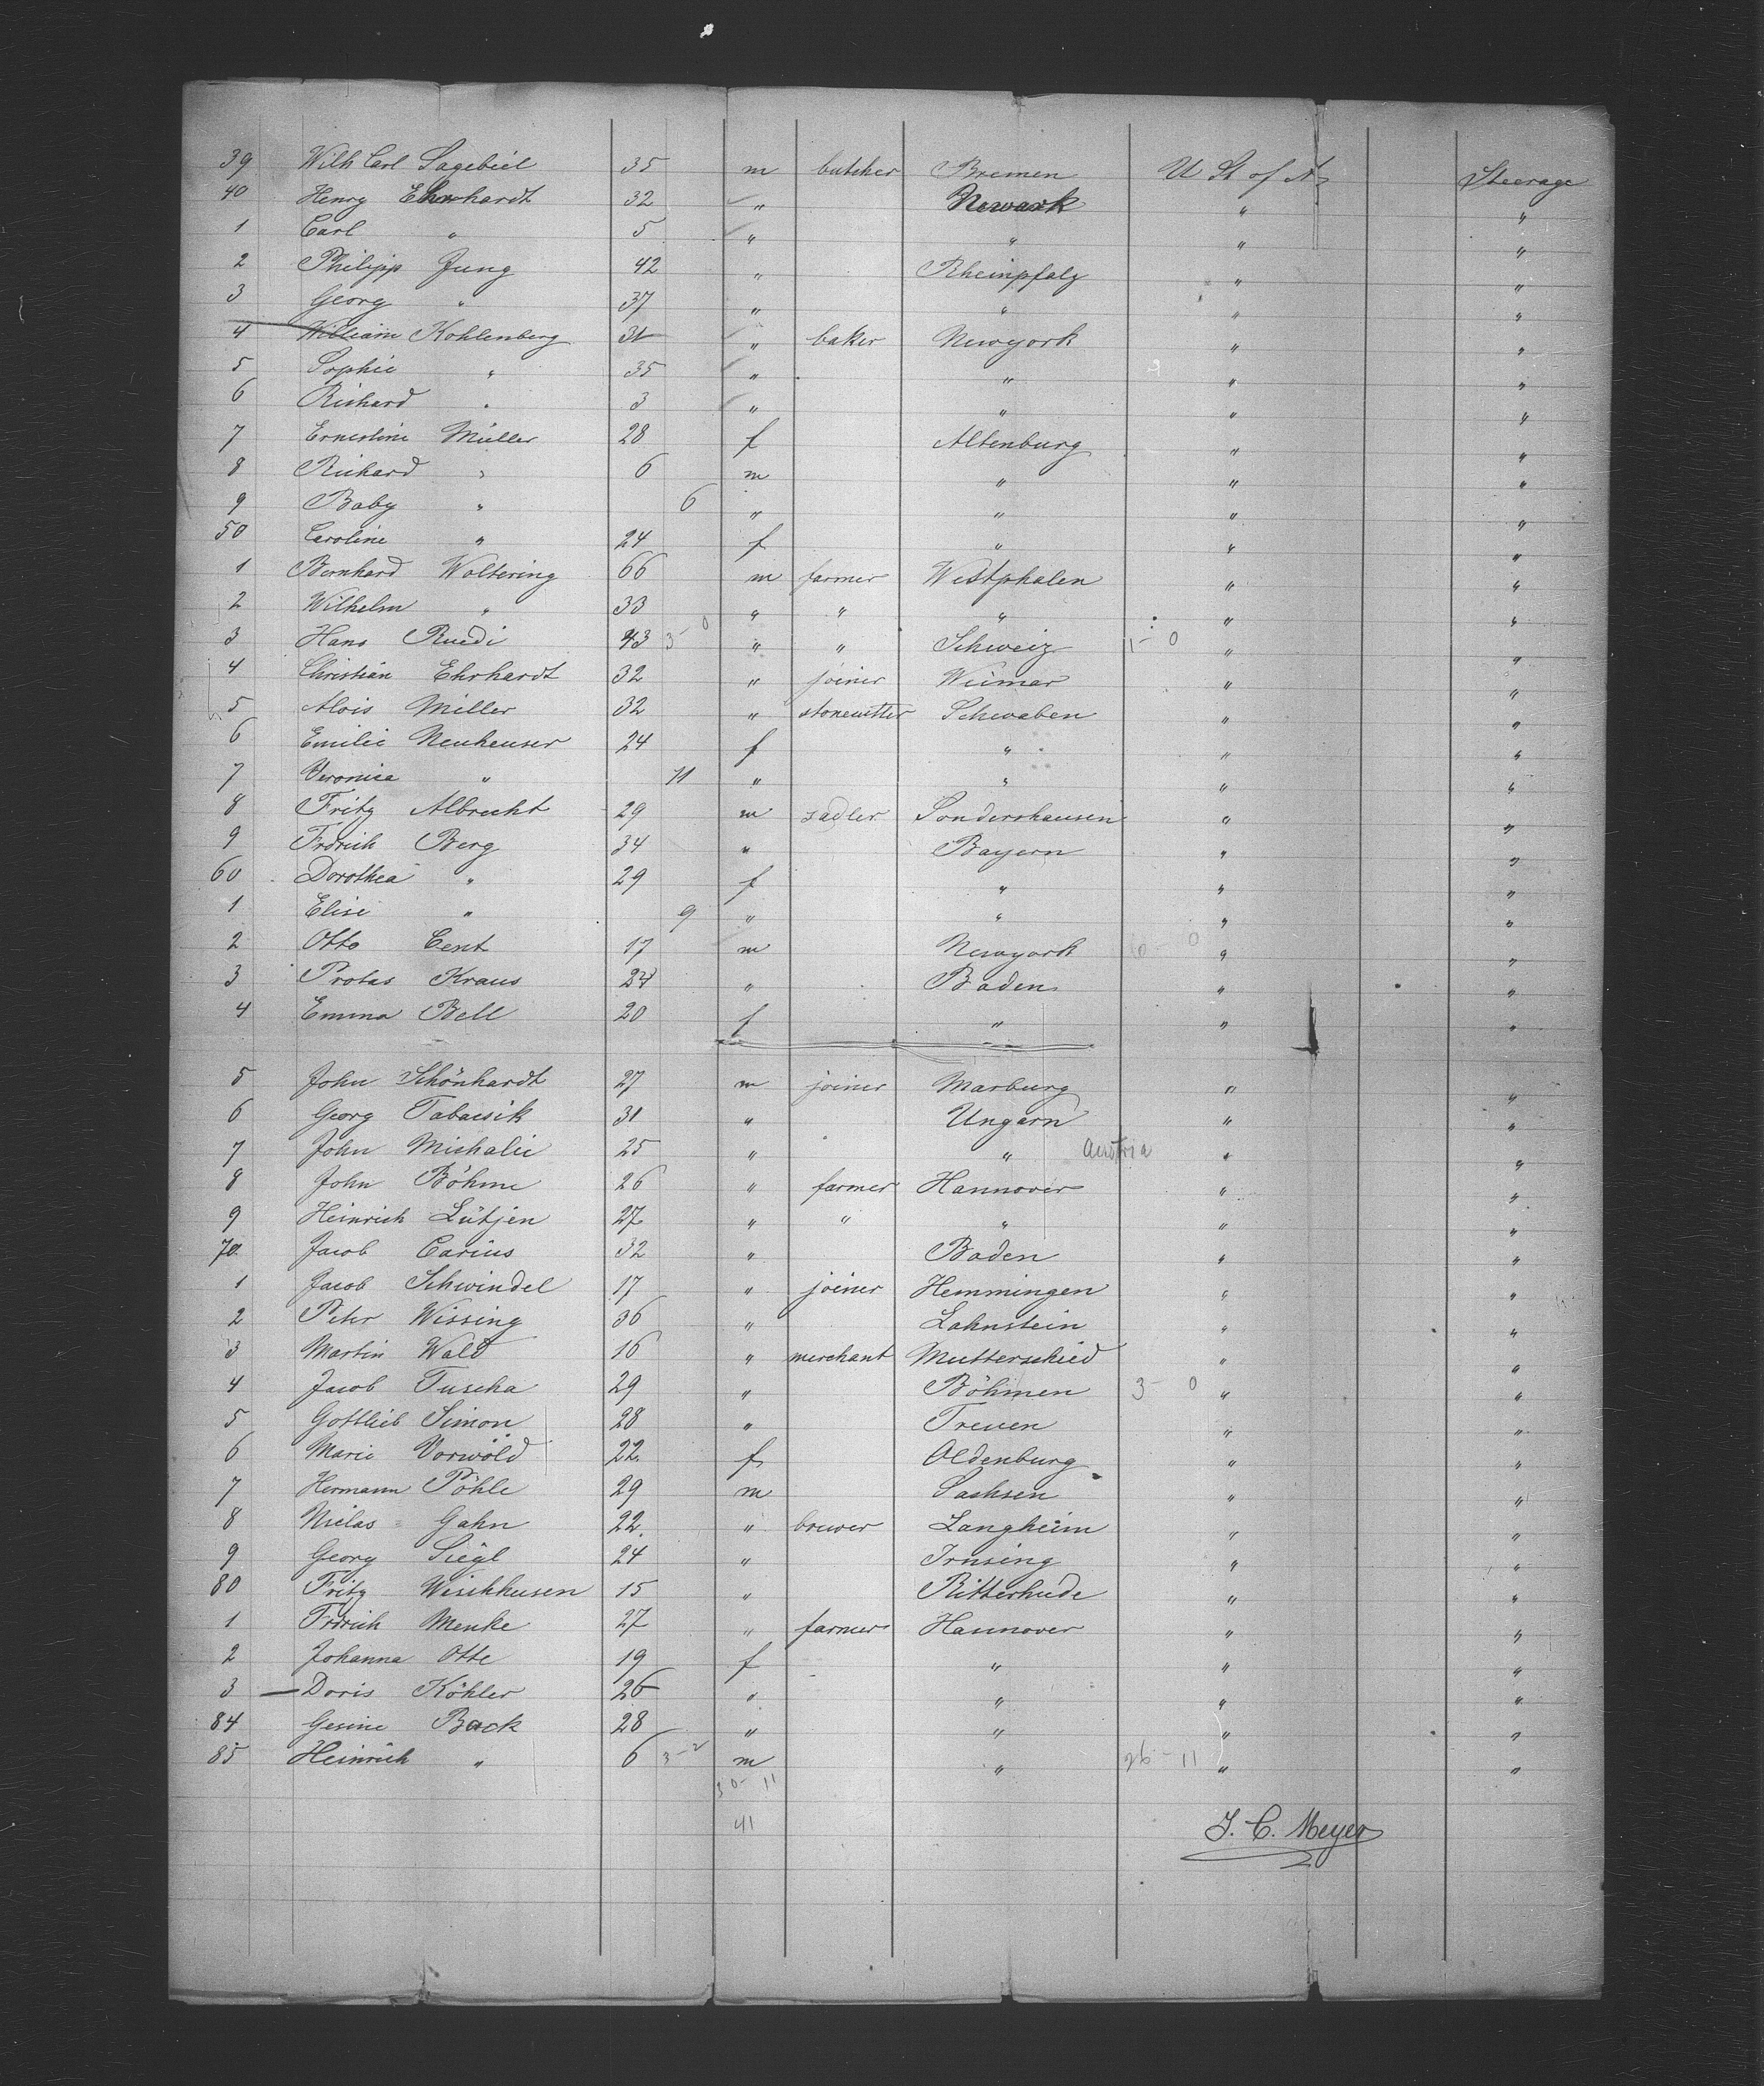 39 Wilh Carl Sagebiel 35 m butcher Bremen U St of A Steerage
40 Henry Ehrhardt 32 " Newark " "
1 Carl " 5 " " " "
2 Philipp Jung 42 " Rheinpfalz " "
3 Georg " 37 " " " "
4 William Kohlenberg 31 " baker Newyork " "
5 Sophie " 35 " " " "
6 Richard " 3 " " " "
7 Ernestine Müller 28 f Altenburg " "
8 Richard " 6 m " " "
9 Baby " 6 " " " "
50 Caroline " 24 f " " "
1 Bernhard Woltering 66 m farmer Westphalen " "
2 Wilhelm " 33 " " " " "
3 Hans Ruedi 43 3-0 " " Schweiz 1-0 " "
4 Christian Ehrhardt 32 " joiner Weimar " "
5 Alois Miller 32 " stonecutter Schwaben " "
6 Emilie Neuheuser 24 f " " "
7 Veronica " 11 " " " "
8 Fritz Albrecht 29 m sadler Sondershausen " "
9 Frdrich Berg 34 " Bayern " "
60 Dorothea " 29 f " " "
1 Elise " 9 " " " "
2 Otto Cent 17 m Newyork 0 0 " "
3 Protas Kraus 27 " Baden " "
4 Emma Bell 20 f " " "
5 John Schönhardt 27 m joiner Marburg " "
6 Georg Tabacsik 31 " Ungarn " "
7 John Michalic 25 " " Austria " "
8 John Böhme 26 " farmer Hannover " "
9 Heinrich Lütjen 27 " " " " "
70 Jacob Carius 32 " Baden " "
1 Jacob Schwindel 17 " joiner Hemmingen " "
2 Peter Wissing 36 " Lahnstein " "
3 Martin Wald 16 " merchant Mutterschied " "
4 Jacob Tuscha 29 " Böhmen 3-0 " "
5 Gottlieb Simon 28 " Treuen " "
6 Marie Vorwold 22 f Oldenburg " "
7 Hermann Pöhle 29 m Sachsen " "
8 Niclas Gahn 22 " brewer Langheim " "
9 Georg Siegl 24 " Irnsing " "
80 Fritz Wischhusen 15 " Ritterhude " "
1 Frdrich Menke 27 " farmer Hannover " "
2 Johanna Otte 19 f " " "
3 Doris Köhler 26 " " " "
84 Gesine Back 28 " " " "
85 Heinrich " 6 3-2 m " 26-11 " "
30-11
41
J. C. Meyer